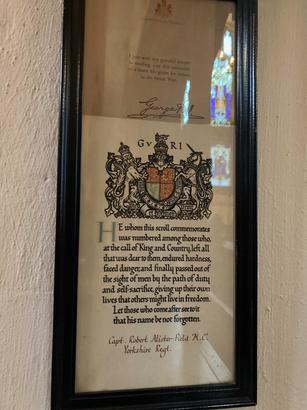 I join with my grateful people
in sending you this memorial
of a brave life given for others
in the Great War.
George R.I.
G V R I
HE whom this scroll commemorates
was numbered among those who,
at the call of King and Country, left all
that was dear to them, endured hardness,
faced danger, and finally passed out of
the sight of men by the path of duty
and self-sacrifice, giving up their own
lives that others might live in freedom.
Let those who come after see to it
that his name be not forgotten.
Capt. Robert Alister Field M.C.
Yorkshire Regt.